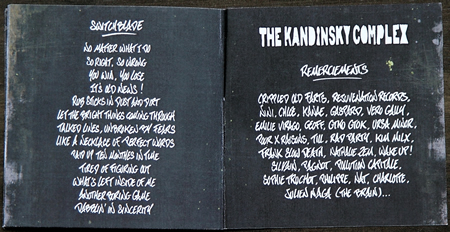 SWITCHBLADE
NO MATTER WHAT I DO
SO RIGHT, SO WRONG
YOU WIN, YOU LOSE
IT'S OLD NEWS!
RUB STICKS IN DUST AND DIRT
LET THE BRIGHT THINGS COMING THROUGH
TALKED LINES, UNBROKEN BY FEARS
LIKE A NECKLACE OF PERFECT WORDS
TEN MONTHES IN TIME
TIRED OF FIGURING OUT
WHAT'S LEFT INSIDE OF ME
ANOTHER BORING GAME
DABBLIN' IN SINCERITY
THE KANDINSKY COMPLEX
REMERCIEMENTS
CRIPPLED OLD FARTS, REJUVENATION RECORDS,
NINI, CHLOE, KANAE, GASPARD, VERO GALLY,
EMILIE VIRAGO, GEOFF, GTNO GROK, URSA MINOR,
POUR X RAISONS, TILL, RAD PARTY, KIM MILX,
FRANK SLOW DEATH, NATHALIE ZEN, WAKE UP!
SYLVAIN, PAGNOT, POLLUTION CAPITALE,
SOPHIE TRUCHOT, PHILIPPE, NAT, CHARLOTTE,
JULIEN MAGA (THE BRAIN)...